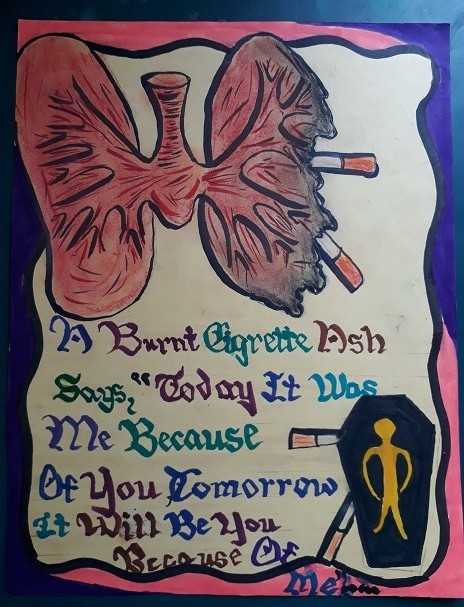 A Burnt Cigrette Ash
Says, "Today It Was
Me Because
Of You, Tomorrow
It Will Be You
Because Of
Me"